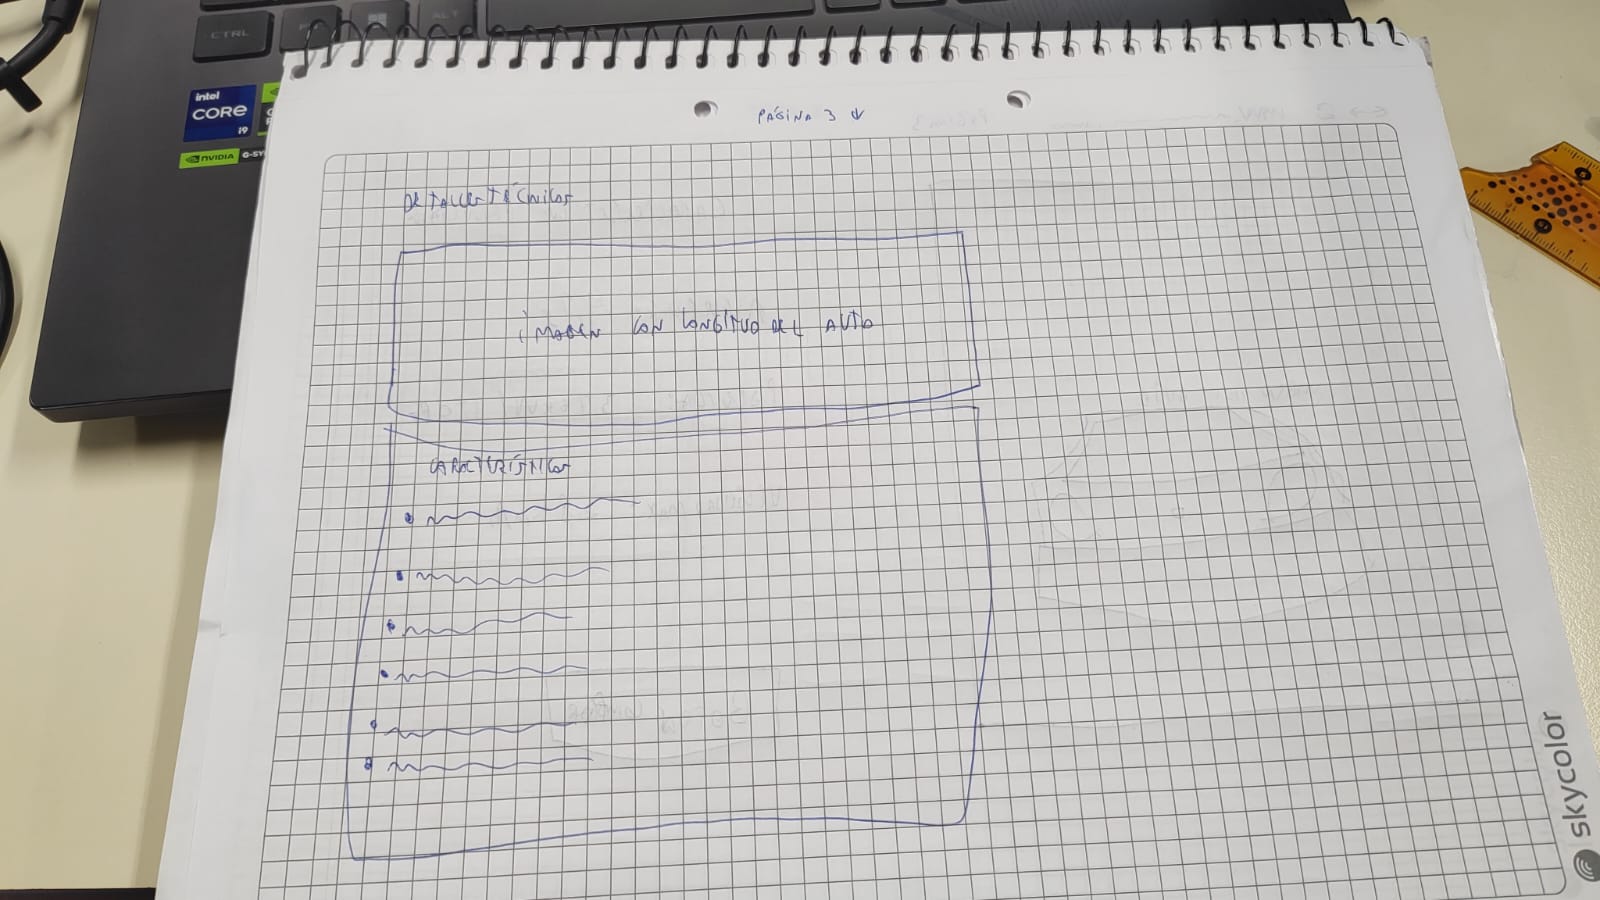 CTRL
ALT
intel
CORE
i9
NVIDIA G-SY
PÁGINA 3 ↓
DETALLES TÉCNICOS
IMAGEN CON LONGITUD DEL AUTO
CARACTERÍSTICAS
skycolor